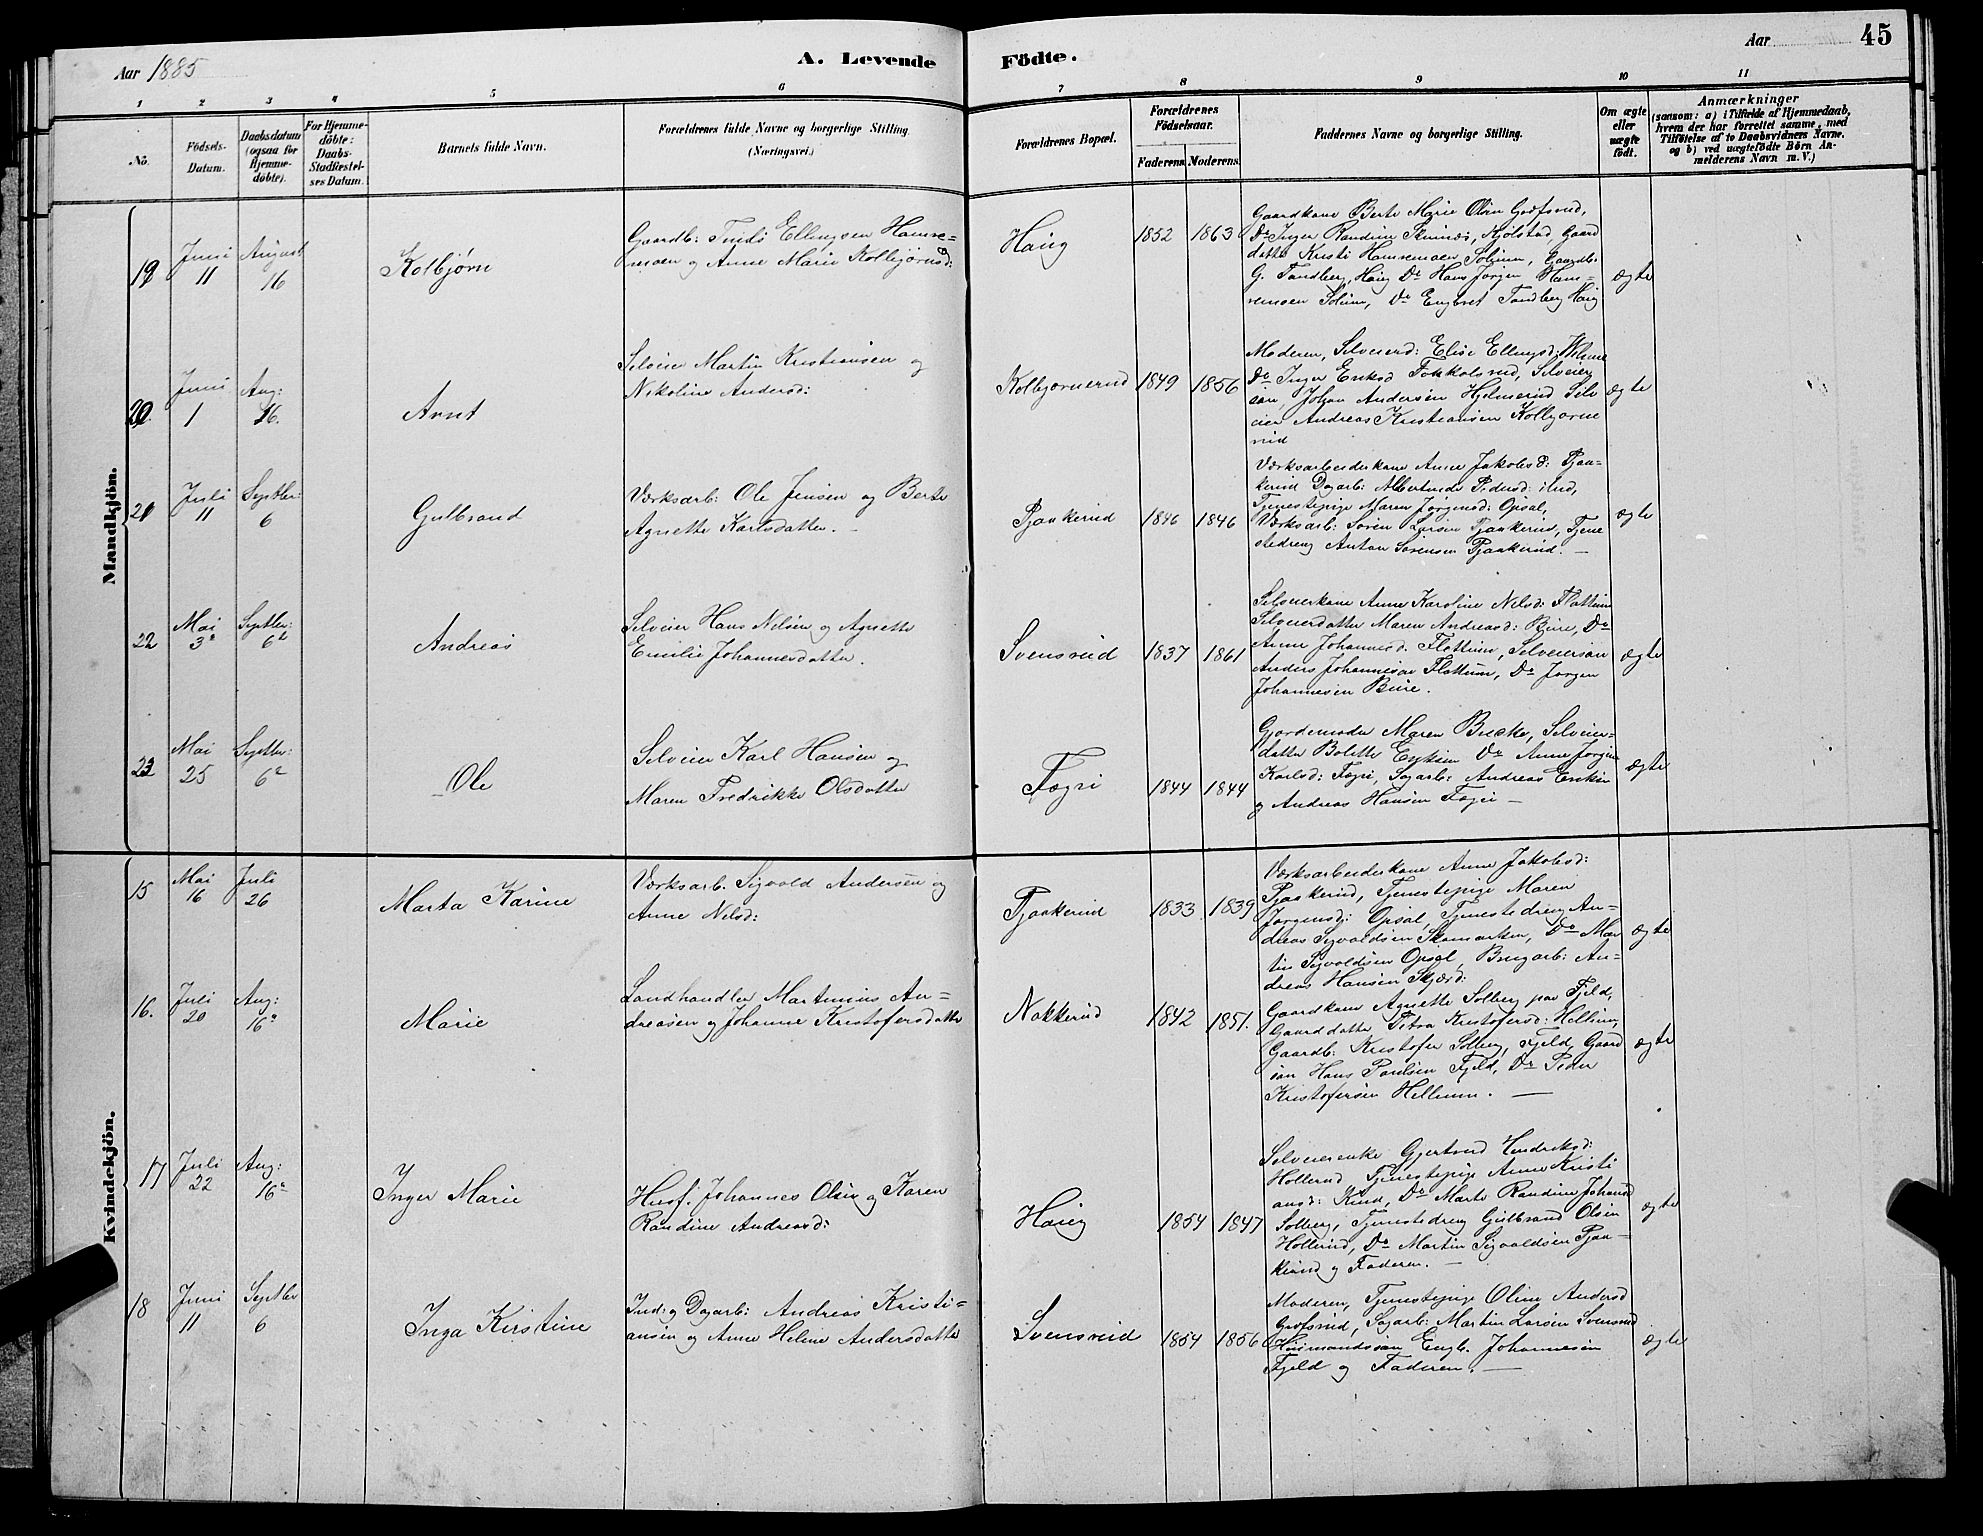 Aar 1885
A. Levende
Födte.
Aar
45
1 2 3 4 5 6 7 8 9 10 11
No.
Födsels-
Datum.
Daabsdatum
(ogsaa for
Hjemme-
döbte).
For Hjemme-
döbte:
Daabs-
Stadfæstel-
ses Datum.
Barnets fulde Navn.
Forældrenes fulde Navne og borgerlige Stilling.
(Næringsvei.)
Forældrenes Bopæl.
Forældrenes
Födselsaar.
Faderens. Moderens.
Faddernes Navne og borgerlige Stilling.
Om ægte
eller
uægte
födt.
Anmærkninger
(saasom: a) i Tilfælde af Hjemmedaab,
hvem der har forrettet samme, med
Tilföielse af to Daabsvidners Navne.
og b) ved uægtefödte Börn An-
melderens Navn m. V.)
Mandkjön.
19
Juni
11
August
16
Kolbjørn
Gaardb: Ellingsen Hamre-
moen og Anne Marie Kolbjørnsd:
Haug
1852 1863
Gaardkone Berte Marie Olsen Godfsrud,
Do Inger Randine Skinnes, Kjølstad, Gaard
datter Kristi Hamremoen Solum, Gaardb:
G. Tandberg, Haug Do Hans Jørgen Ham-
remoen Solum, Do Engbret Tandberg Haug
ægte
20
Juni
1
Aug:
16.
Arnt
Selveier Martin Kristiansen og
Nikoline Andersd:
Kolbjørnerud
1849 1856
Moderen, Selveierd: Elise Ellingsd:
Do Inger Eriksd Selveier
søn, Johan Andersen Hjelmerud Selv
eier Andreas Kristiansen Kolbjørne
rud
ægte
21
Juli
11
Septbr:
6
Gulbrand
Værksarb: Ole Jensen og Berte
Agnette Karlsdatter. —
Tjaakerud
1846 1846
Værksarbeiderkone Anne Jakobsd: Tjaa-
kerud Dagarb: Albertine Pedersd:
Tjenestepige Maren Jørgensd: Opsal,
Værksarb: Søren Larsen Tjaakerud, Tjene
stedreng Anton Sørensen Tjaakerud. —
ægte
22
Mai
3
Septbr:
6
Andreas
Selveier Hans Nilsen og Agnette
Emilie Johannesdatter.
Svensrud
1837 1861
Selveierkone Anne Karoline Nilsd: Flattum
Selveierdatter Maren Andreasd: Bure, Do
Anne Johannesd. Flattum, Selveiersøn
Anders Johannesen Flattum, Do Jørgen
Johannesen Bure.
ægte
23
Mai
25
Septbr:
6
Ole
Selveier Karl Hansen og
Maren Fredrikke Olsdatter
Fægri
1844 1844
Gjordemoder Maren Selveier-
datter Bolette Do Anne Jørgine
Karlsd: Fægri, Sagarb: Andreas
og Andreas Hansen Fægri —
ægte
Kvindekjön.
15
Mai
16
Juli
26
Marta Karine
Værksarb. Sigvald Andersen og
Anne Nilsd:
Tjaakerud
1833 1839
Værksarbeiderkone Anne Jakobsd:
Tjaakerud, Tjenestepige Maren
Jørgensd: Opsal, Tjenestedreng An-
dreas Sigvaldsen Do Mar
tin Sigvaldsen Opsal, Brugarb: An-
dreas Hansen Skjærd:
ægte
16.
Juli
20
Aug:
16
Marie
Landhandler Martinius An-
dreasen og Johanne Kristofersdatter
Nakkerud
1842 1851.
Gaardkone Agnette Solberg paa Fjeld,
Gaarddatter Petra Kristofersd: Hellum,
Gaardb: Kristofer Solberg, Fjeld, Gaard
søn Hans Paulsen Fjeld, Do Peder
Kristofersen Hellum. —
ægte
17
Juli
22
Aug:
16
Inger Marie
Husf. Johannes Olsen og Karen
Randine Andreasd:
Haug
1854 1847
Selveierenke Gjertrud Hendriksd:
Hollerud Tjenestepige Anne Kristi
ansd: Do Marte Randine Johansd
Solberg, Tjenestedreng Gulbrand Olsen
Hollerud, Do Martin Sigvaldsen Tjaa-
kerud og Faderen. —
ægte
18
Juni
11
Septbr
6
Inga Kirstine
Ind: og Dagarb: Andreas Kristi-
ansen og Anne Helene Andersdatter
Svensrud
1854 1856
Moderen, Tjenestepige Oline Andersd
Godfsrud, Sagarb: Martin Larsen Svensrud
Husmandssøn Engb. Johannesen
Fjeld og Faderen. —
ægte